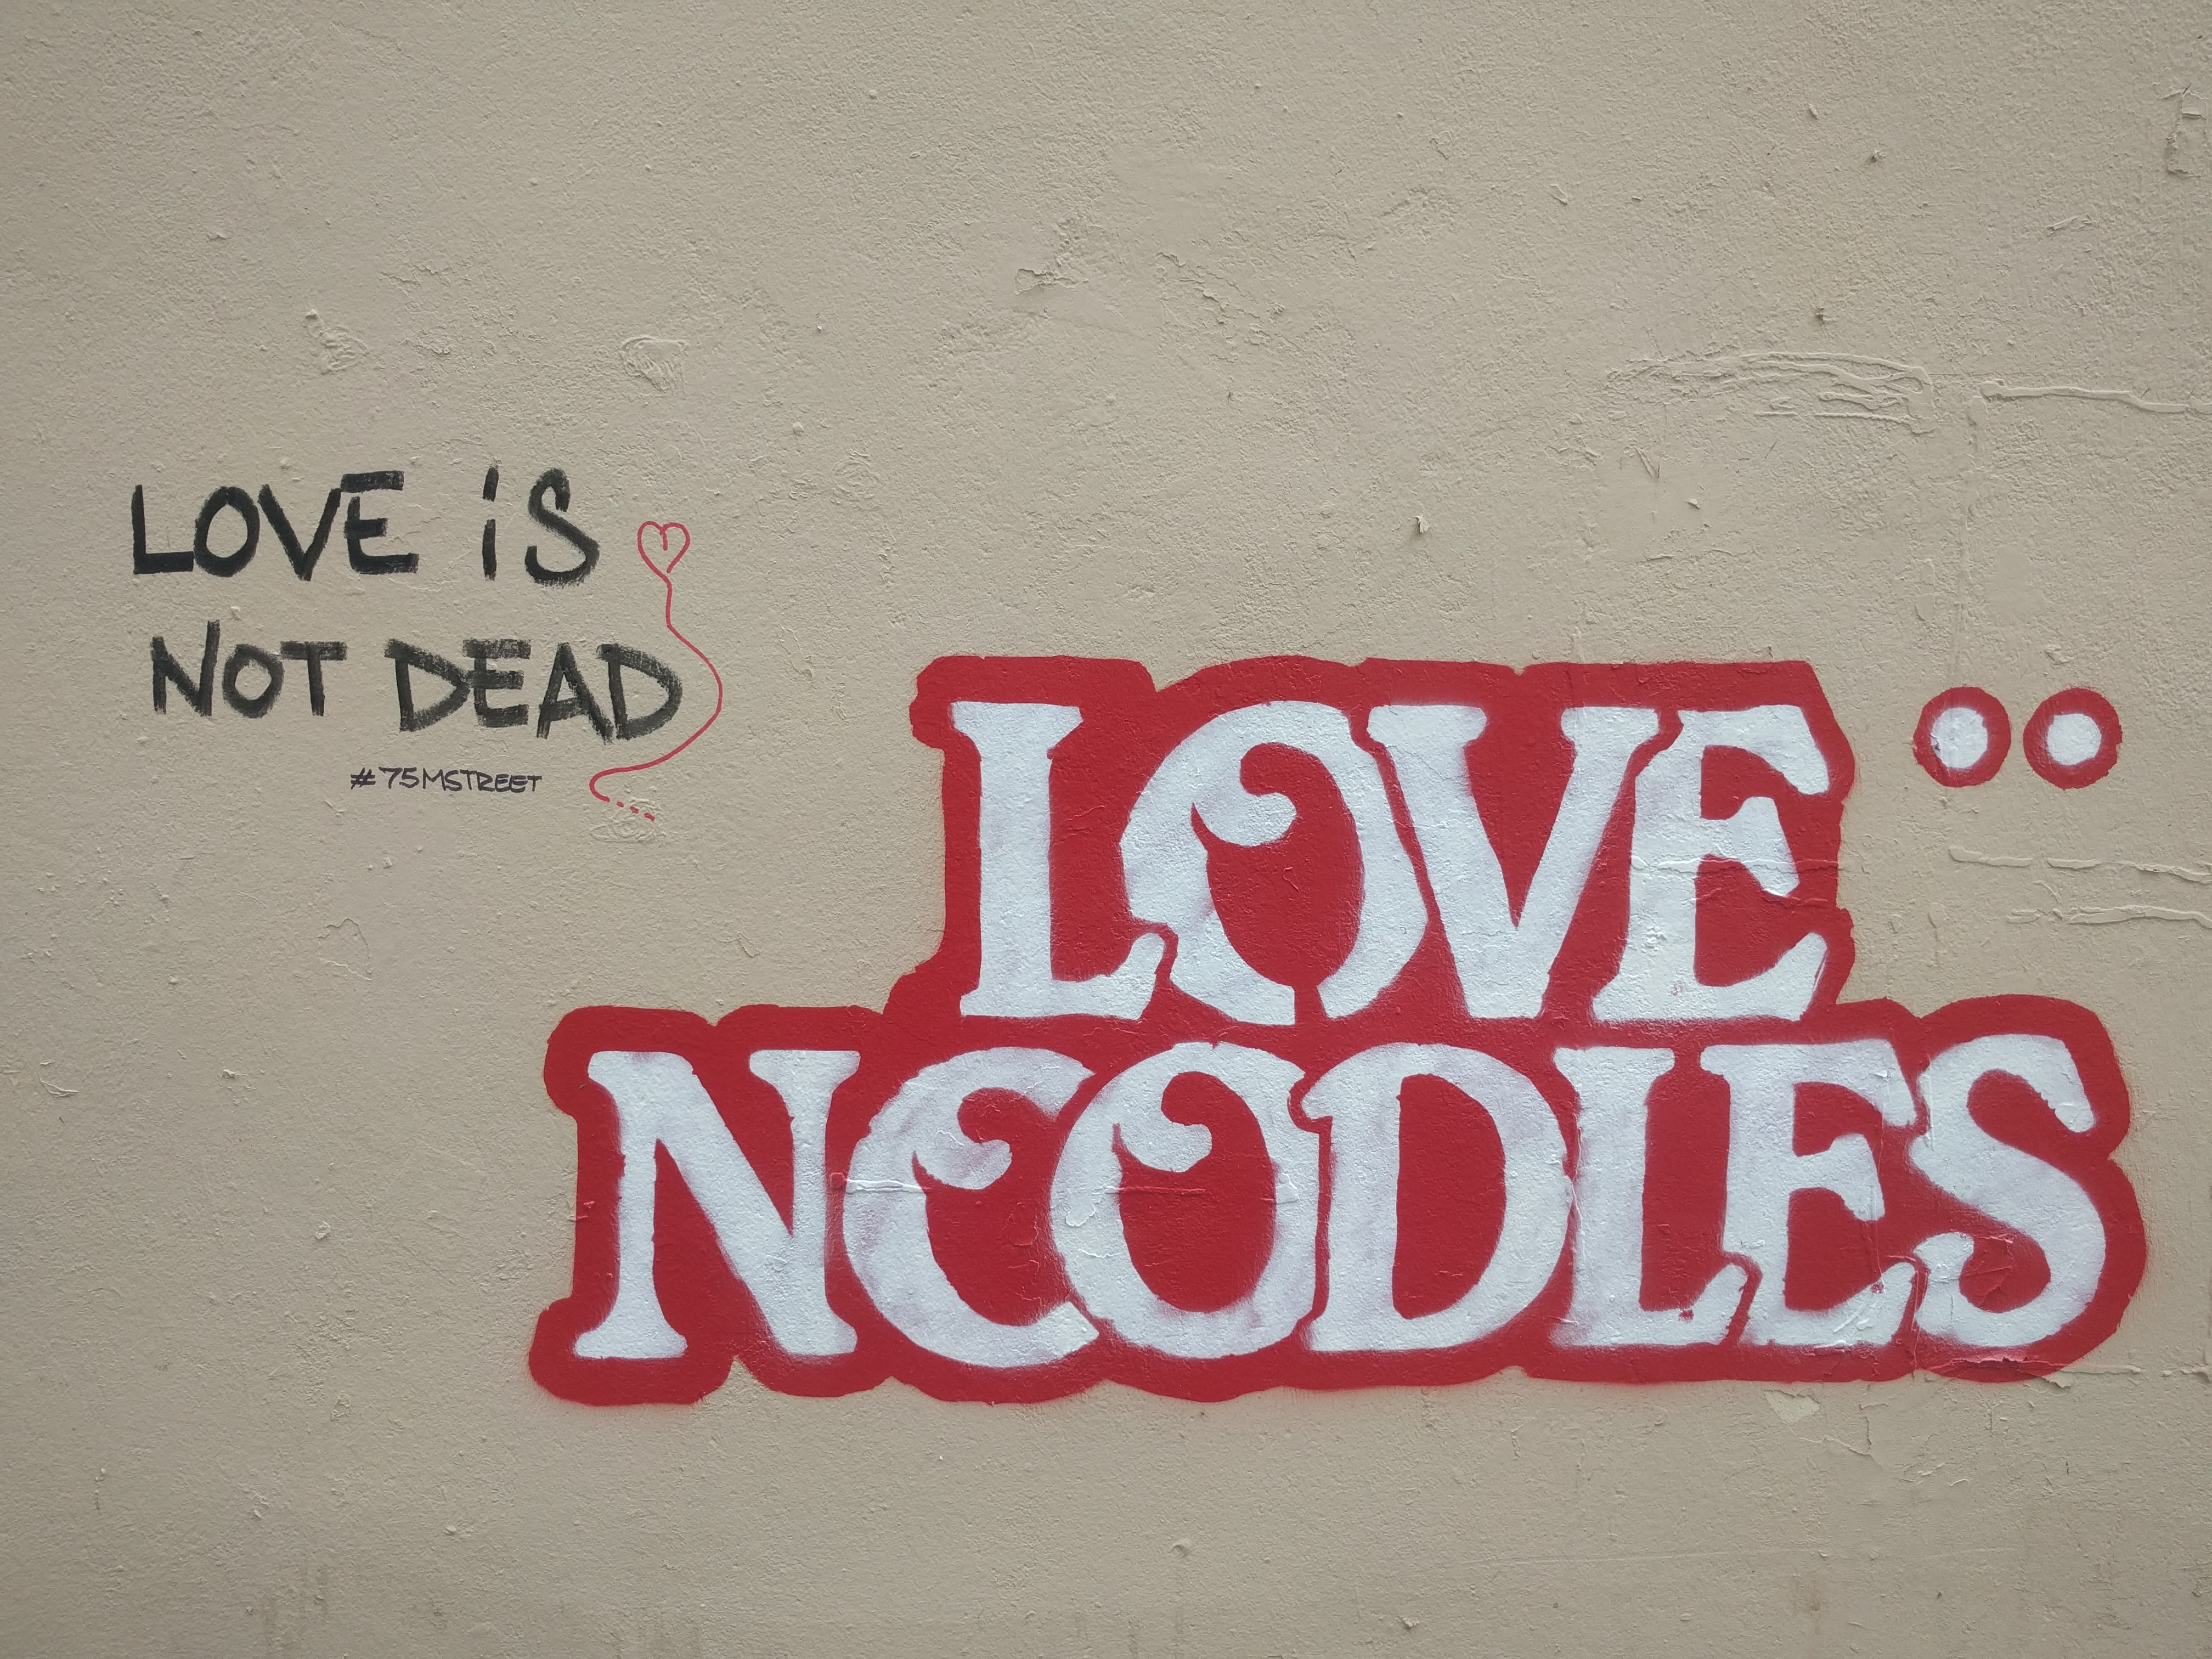 LOVE iS
NOT DEAD
#75MSTREET
LOVE
NOODLES